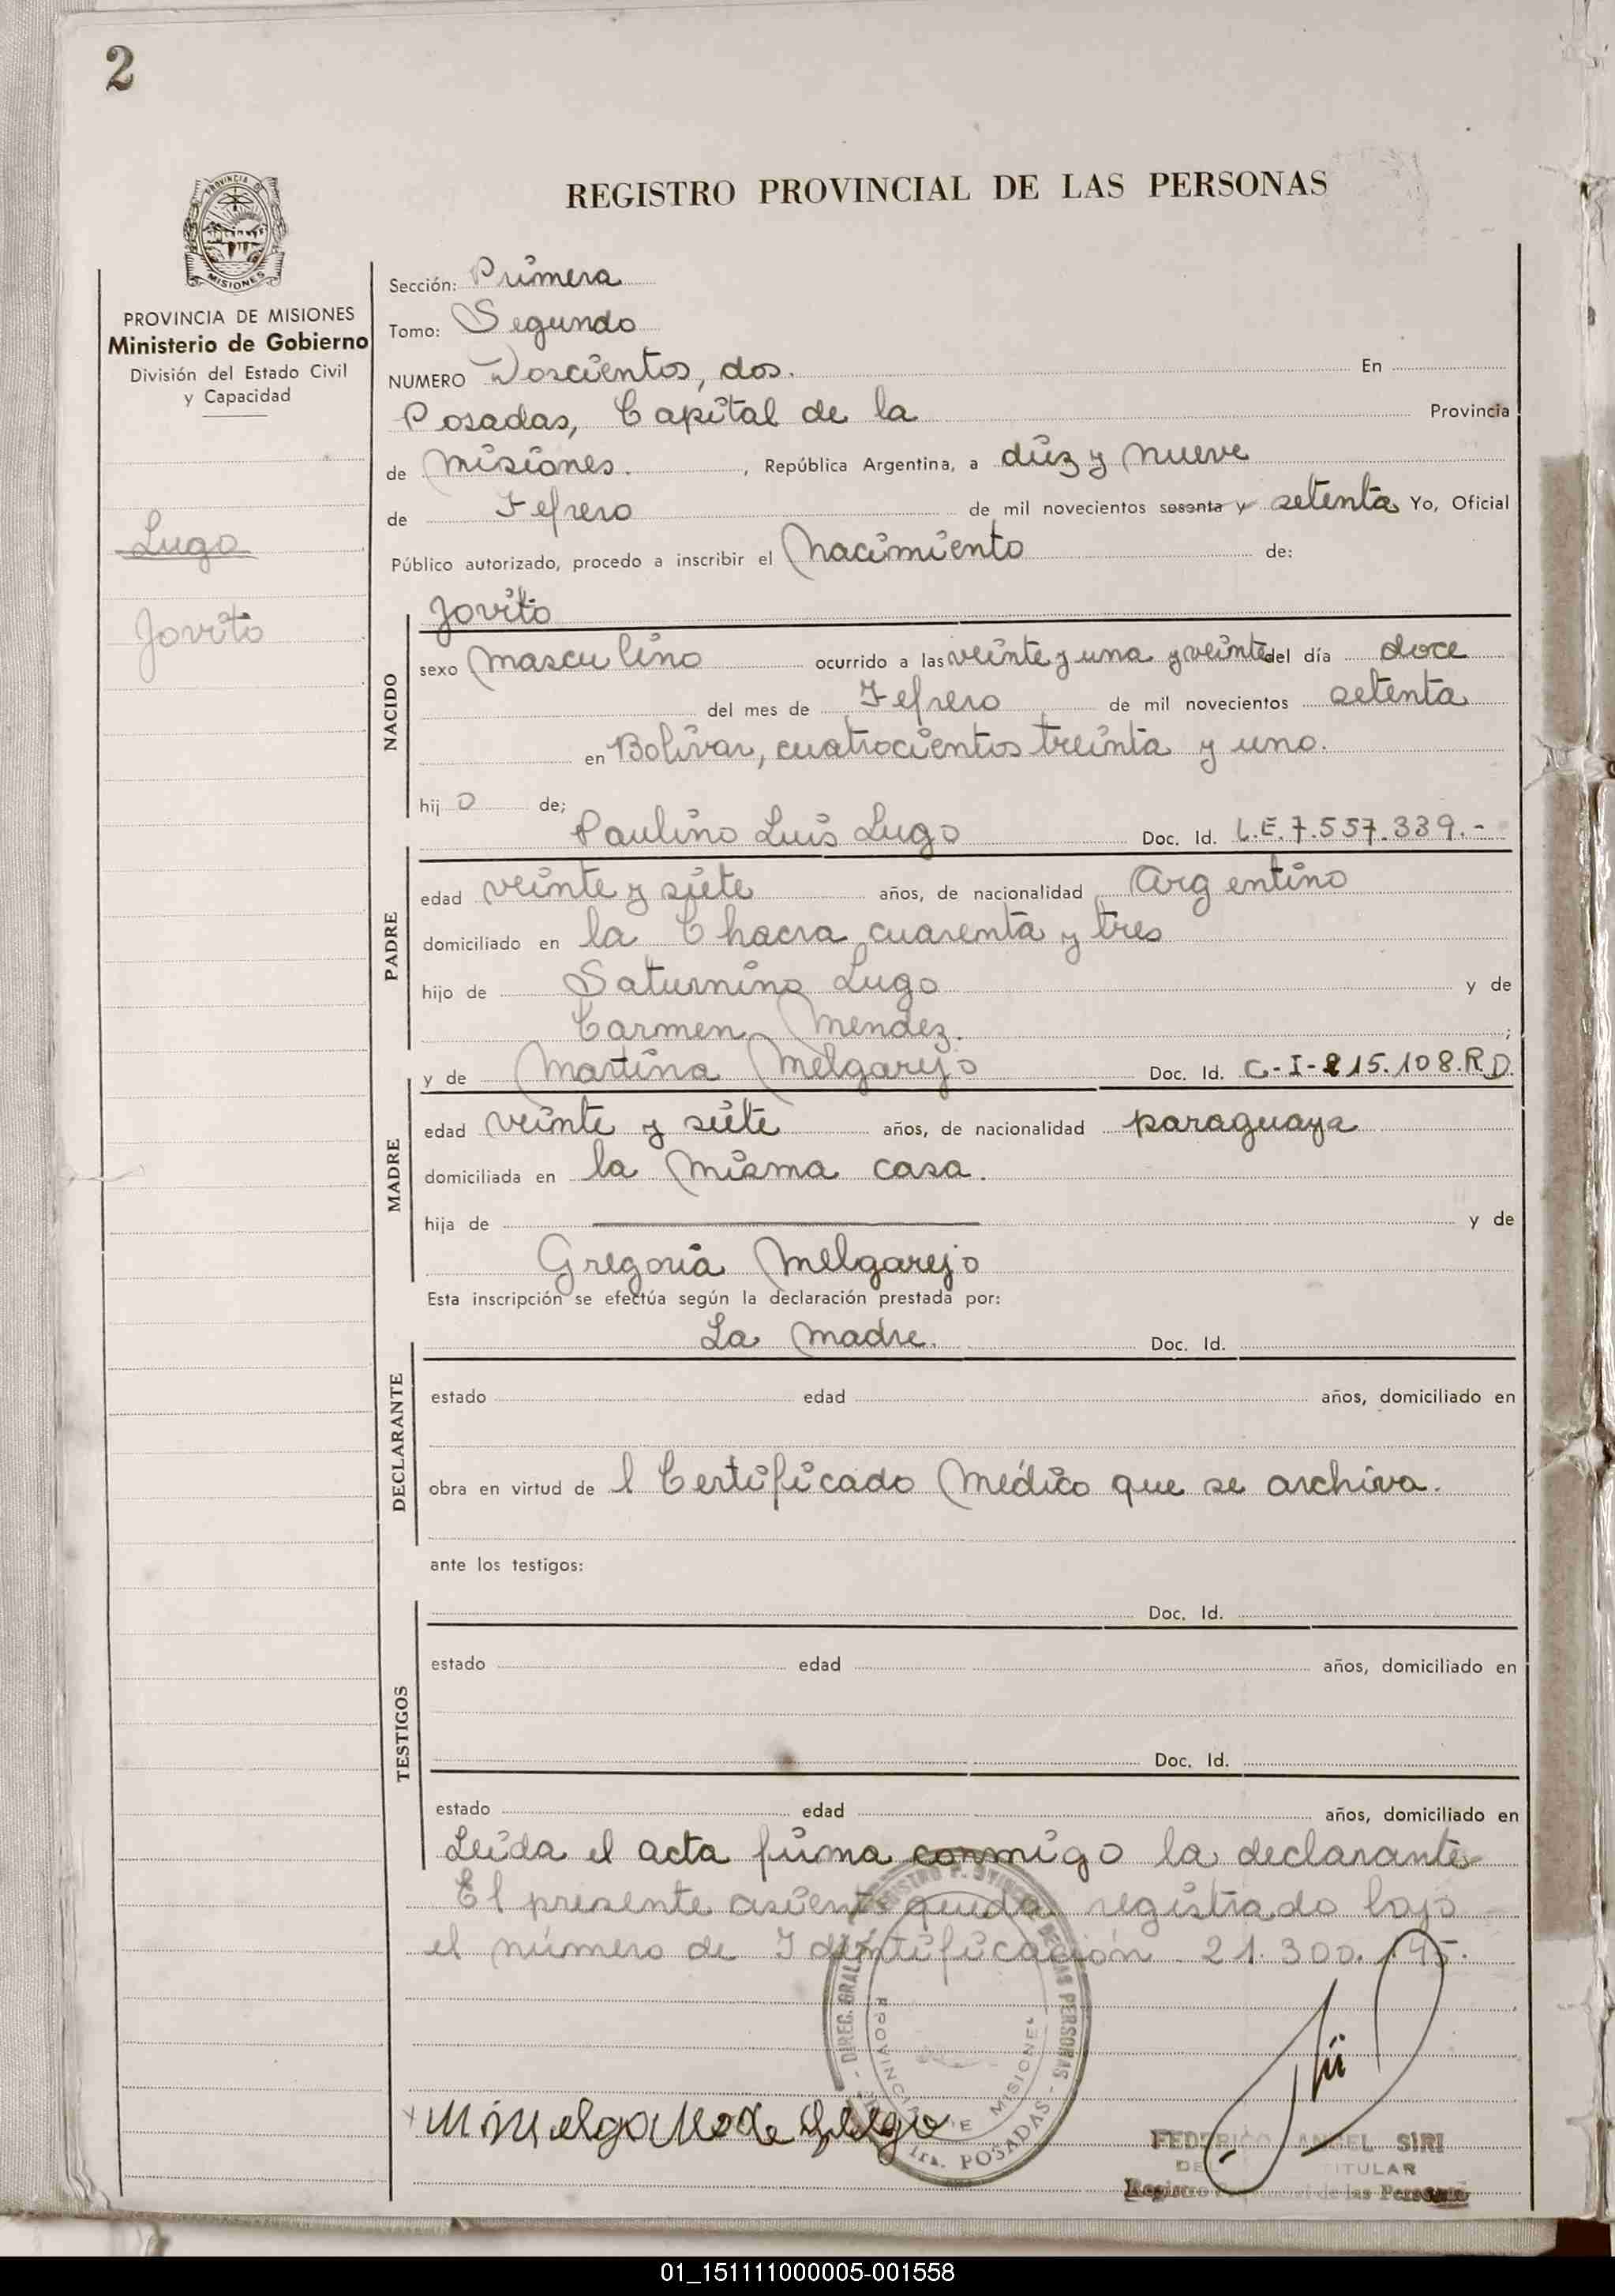 2
REGISTRO PROVINCIAL DE LAS PERSONAS
PROVINCIA DE
MISIONES
PROVINCIA DE MISIONES
Ministerio de Gobierno
División del Estado Civil
y Capacidad
Lugo
Jovito
Sección: Primera
Tomo: Segundo
NUMERO Doscientos, dos. En
Posadas, Capital de la Provincia
de Misiones. , República Argentina, a diez y nueve
de Febrero de mil novecientos sesenta y setenta Yo, Oficial
Público autorizado, procedo a inscribir el Nacimiento de:
Jovito
NACIDO
sexo Masculino ocurrido a las veinte y una y veinte del día doce
del mes de Febrero de mil novecientos setenta
en Bolívar, cuatrocientos treinta y uno.
hij o de;
Paulino Luis Lugo Doc. Id. L.E. 7.557.339.-
PADRE
edad veinte y siete años, de nacionalidad Argentino
domiciliado en la Chacra cuarenta y tres
hijo de Saturnino Lugo y de
Carmen Mendez. ;
y de Martina Melgarejo Doc. Id. C-I-215.108.R.D.
MADRE
edad veinte y siete años, de nacionalidad paraguaya
domiciliada en la misma casa.
hija de y de
Gregoria Melgarejo
Esta inscripción se efectúa según la declaración prestada por:
La madre. Doc. Id.
DECLARANTE
estado edad años, domiciliado en
obra en virtud de l Certificado Médico que se archiva.
ante los testigos:
Doc. Id.
TESTIGOS
estado edad años, domiciliado en
Doc. Id.
estado edad años, domiciliado en
Leída el acta firma conmigo la declarante
El presente asiento queda registrado bajo
el número de Identificación 21.300.195.
DIREC. GRAL. DE LAS PERSONAS
PROVINCIA DE MISIONES
1ra. POSADAS
de Lugo
FEDERICO ANGEL SIRI
TITULAR
Registro Provincial de las Personas
01_151111000005-001558